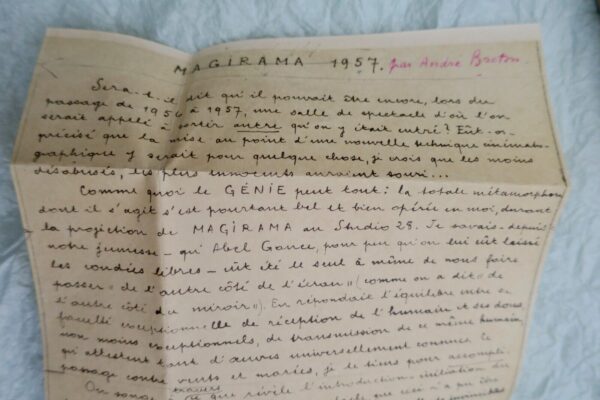 MAGIRAMA 1957. par André Breton
Sera-t-il dit qu'il pourrait être encore, lors du
passage de 1956 à 1957, une salle de spectacle d'où l'on
serait appelé à sortir autre qu'on y était entré? Eût-on
précisé que la mise au point d'une nouvelle technique cinémato-
graphique y serait pour quelque chose, je crois que les moins
désabusés, les plus innocents auraient souri...
Comme quoi le GÉNIE peut tout: la totale métamorphose
dont il s'agit s'est pourtant bel et bien opérée en moi, durant
la projection de MAGIRAMA au Studio 28. Je savais - depuis
notre jeunesse - qu'Abel Gance, pour peu qu'on lui eût laissé
les coudées libres - eût été le seul à même de nous faire
passer "de l'autre côté de l'écran" (comme on a dit "de
l'autre côté du miroir"). En répondait l'équilibre entre sa
faculté exceptionnelle de réception de l'humain et ses dons,
non moins exceptionnels, de transmission de ce même humain,
qu'attestent tant d'œuvres universellement connues. Ce
passage contre vents et marées, je le tiens pour accompli.
On songe à travers ce que révèle l'introduction, initiation du